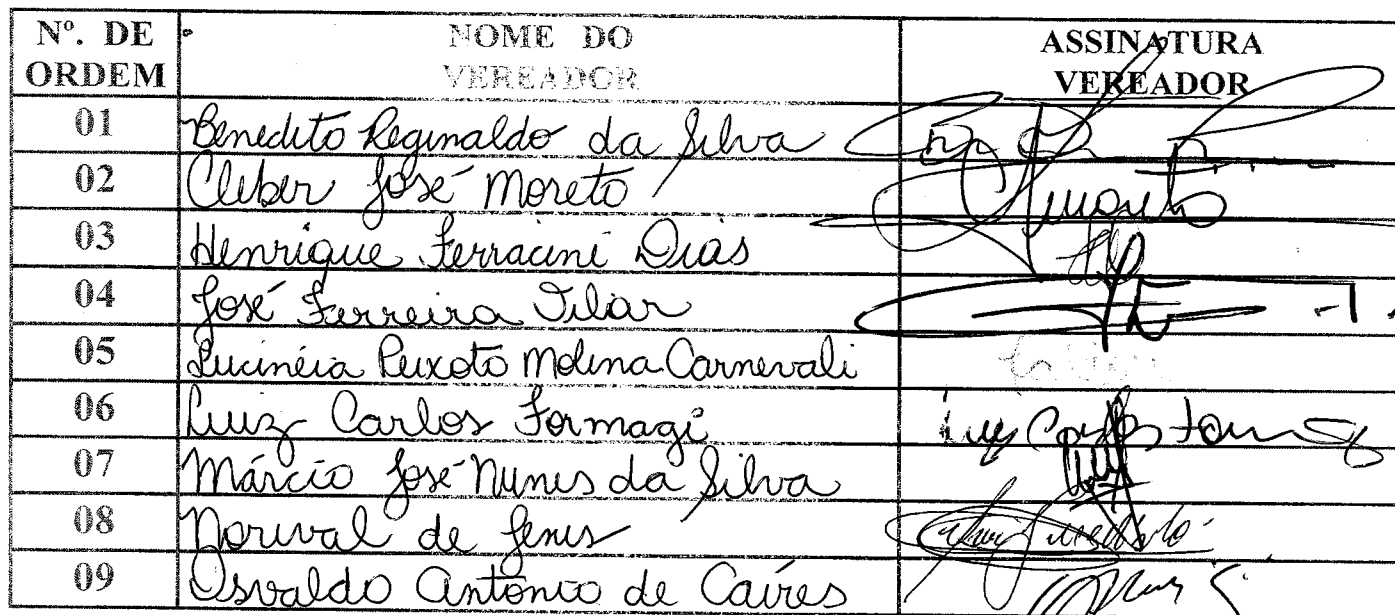 Nº. DE ORDEM NOME DO VEREADOR ASSINATURA VEREADOR
01 Benedito Reginaldo da Silva
02 Cleber José Moreto
03 Henrique Ferracini Dias
04 José Ferreira Vilar
05 Lucinéia Peixoto Molina Carnevali
06 Luiz Carlos Formagi Luiz Carlos
07 Márcio José Nunes da Silva
08 Norival de Jesus
09 Osvaldo Antonio de Caires